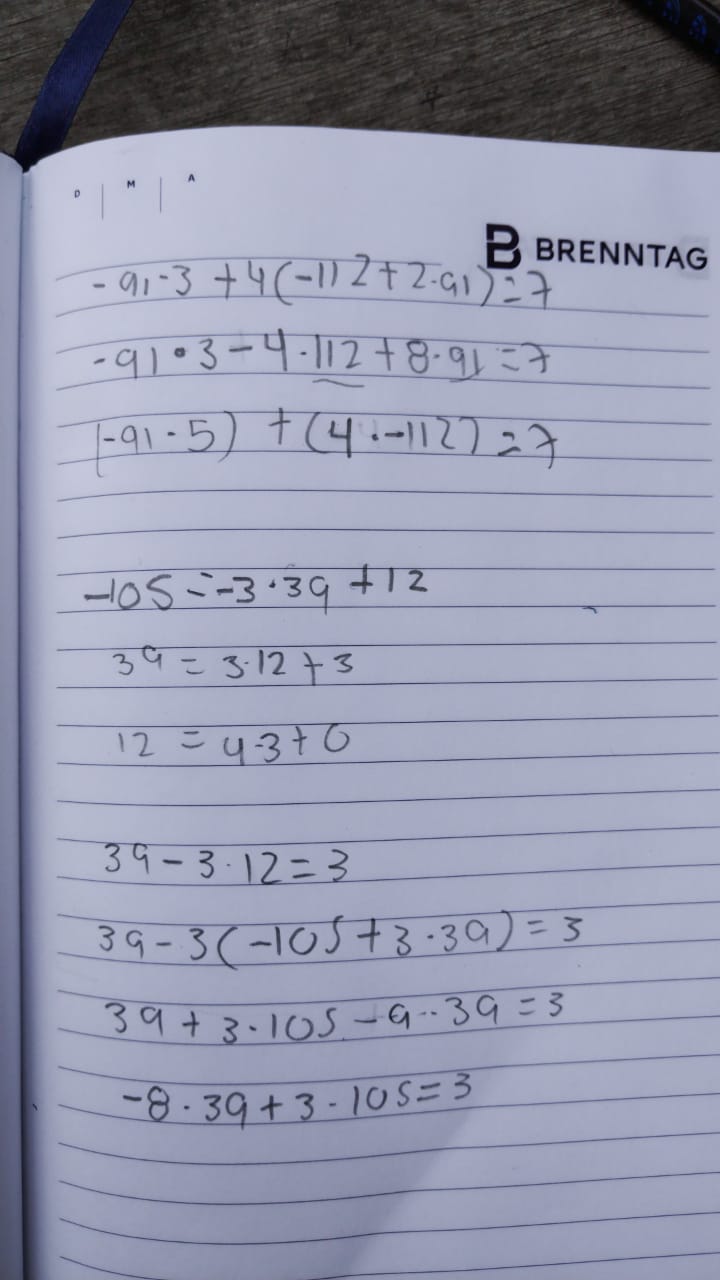 D | M | A
BRENNTAG
-91·3 +4(-112+2·91)=7
-91·3-4·112+8·91=7
(-91·5) +(4·-112)=7
-105=-3·39+12
39=3·12+3
12=4·3+0
39-3·12=3
39-3(-105+3·39)=3
39+3·105-9··39=3
-8·39+3·105=3